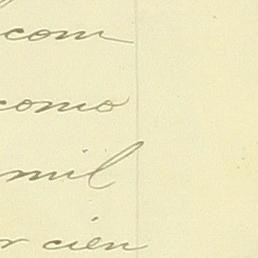 com
como
mil
r cien